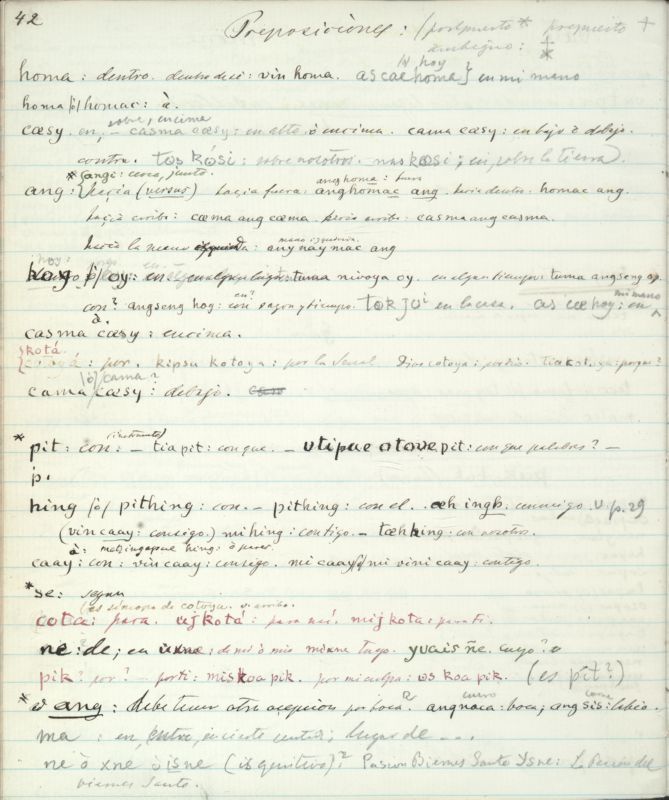 42
Preposiciones: / postpuesto * prepuesto +
ambiguo: +*
homa: dentro. dentro de sí: vin homa. as cae homa } en mi mano
|ó| hoy
homa |ó| homac: à.
cæsy. en, – casma cæsy: en alto ò encima. cama cæsy: en bajo ò debajo.
sobre, encima
contra. tos kósi: sobre nosotros. nas kosi; en, sobre la tierra).
* angi: cerca, junto.
ang: hacia (versus) hacia fuera: anghomac ang. hacia dentro: homac ang.
anghoma: fuera
hacia arriba: cæma ang cæma. hacia arriba: casma ang casma.
hacia la mano izquierda: any nay nac ang
mano izquierda
hoy |ó| oy: en algun lugar: tuma nivoya oy. en algun tiempo: tuma angseng oy.
con? angseng hoy: con razon y tiempo. tok ju i en la casa. as cæ hoy: en mi mano
casma cæsy: encima.
kotá
: por. kipsu kotoya: por la señal. Dios cotoya: por dios. tia cotoya: porque?
|ó| cama?
cama cæsy: debajo.
* pit: con: – tia pit: con que. – utipae otove pit: con que palabras? –
(instrumento)
p.
hing |ó| pithing: con. – pithing: con el. æh ingb: conmigo. V. p. 29
(vin caay: consigo.) mi hing: contigo. – tæh hing: con nosotros.
à:
caay: con: vin caay: consigo. mi caay |ó| mi vini caay: contigo.
* se: segun
(es sincopa de cotoya. v. arriba.
cota: para. ujkotá: para mí. mijkota: para ti.
ne: de; en uxne: de mi ò mio mixne tuyo. yuais ñe. cuyo? v
pik? por? – por ti: mis koa pik. por mi culpa: os koa pik. (es pit?)
* v ang: debe tener otra acepcion por boca? angnaca: boca; ang sis: labio.
cuero carne
ma: en, entre, en cierto central; lugar de – ..
ne ò xne ò isne (is genitivo)? Pasion Biernes Santo Ysne: La Pasion del
viernes Santo.